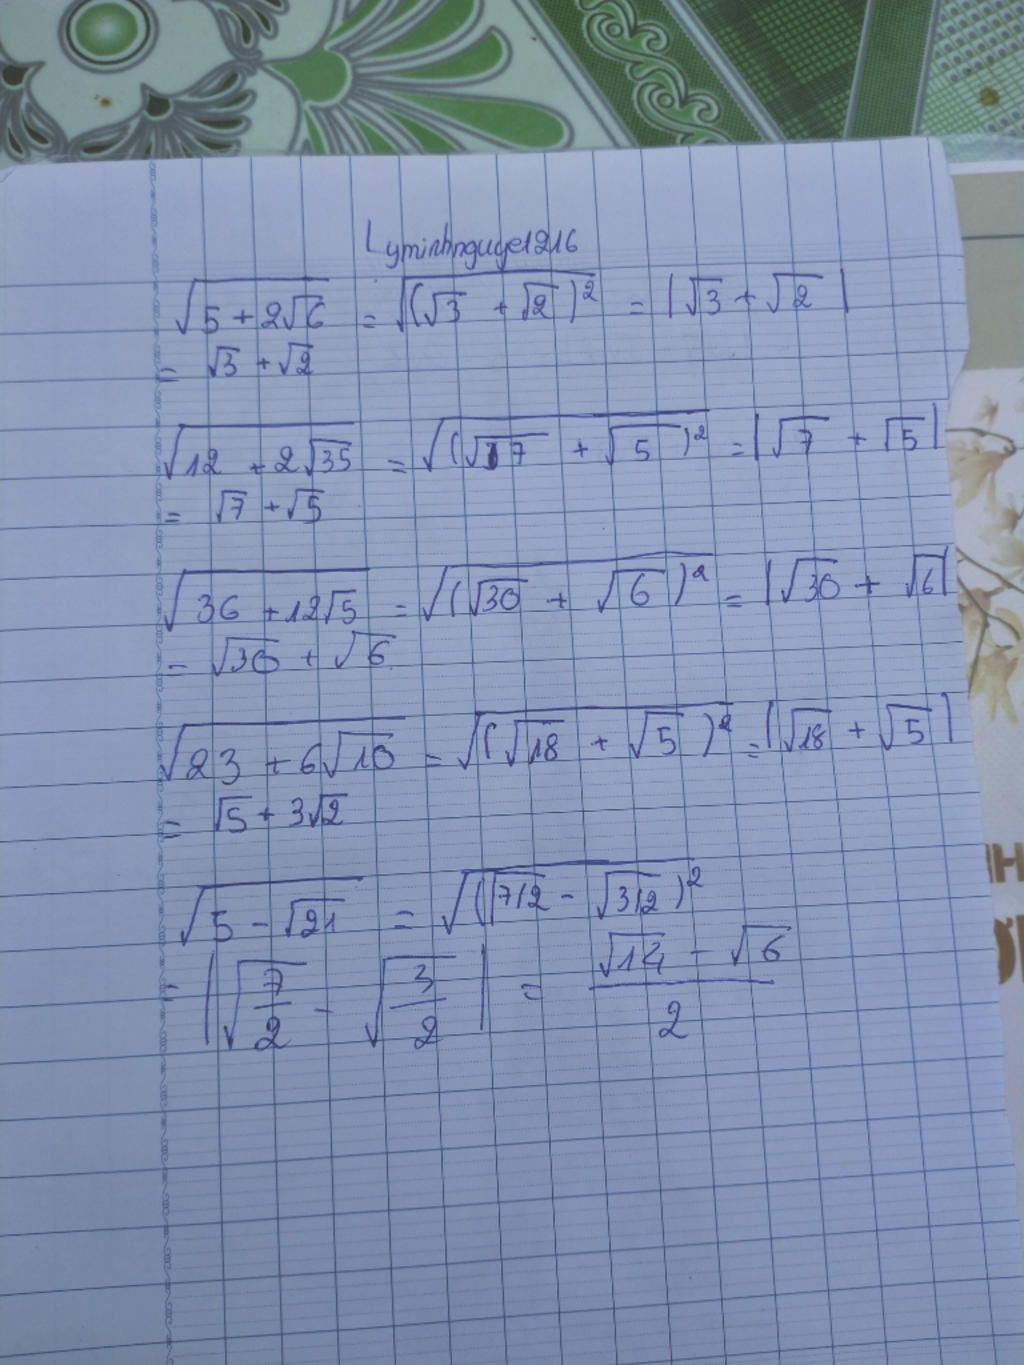 Lyminhnguye1216
√(5 + 2√6) = √((√3 + √2)²) = |√3 + √2|
= √3 + √2
√(12 + 2√35) = √((√7 + √5)²) = |√7 + √5|
= √7 + √5
√(36 + 12√5) = √((√30 + √6)²) = |√30 + √6|
= √30 + √6
√(23 + 6√10) = √((√18 + √5)²) = |√18 + √5|
= √5 + 3√2
√(5 - √21) = √((√(7/2) - √(3/2))²)
= |√(7/2) - √(3/2)| = (√14 - √6)/2